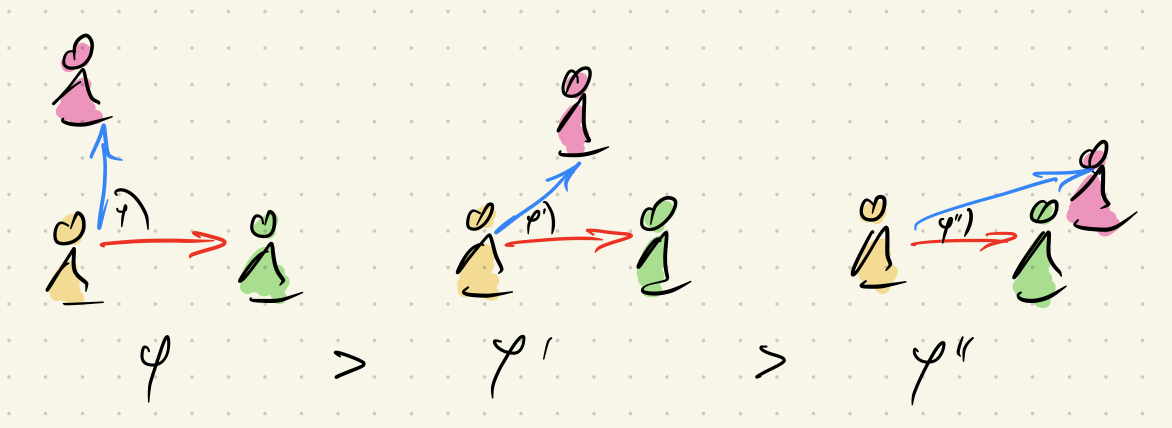 φ φ' φ"
φ > φ' > φ"